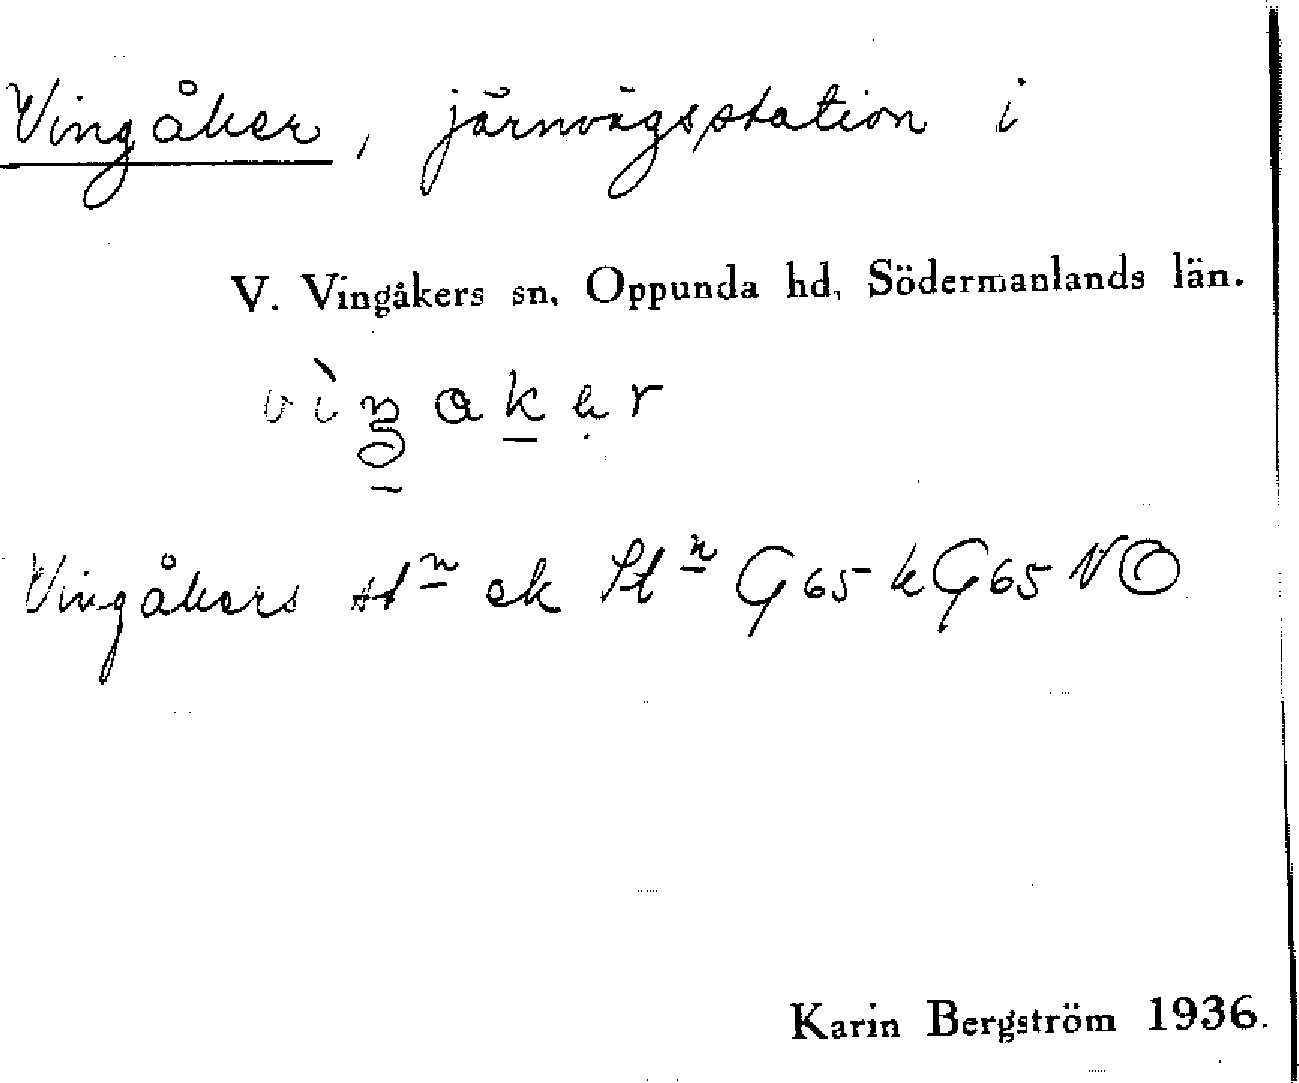 Vingåker, järnvägsstation i
V. Vingåkers sn, Oppunda hd, Södermanlands län.
Vingåkers stn ek Stn G65 k G65 NO
Karin Bergström 1936.